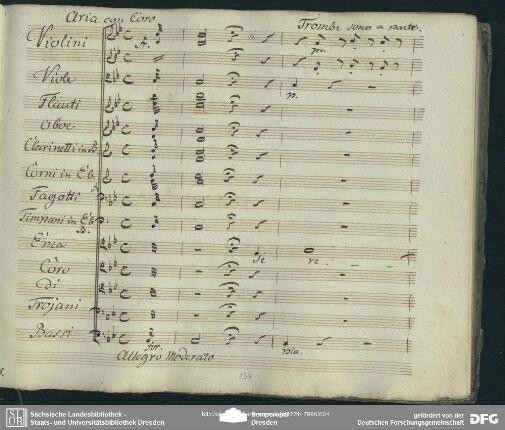 Aria con Coro
Trombe sono a parte.
Violini
fr.
pia.
Viole
p.
Flauti
Oboe
Clarinetti in B.
Corni in E b.
Fagotti
Timpani in E b.
B.
Enea
Se
re
Coro
Di
Trojani
Bassi
for.
pia.
Allegro Moderato
SLUB
Sächsische Landesbibliothek -
Staats- und Universitätsbibliothek Dresden
Semperoper
Dresden
gefördert von der
Deutschen Forschungsgemeinschaft
DFG